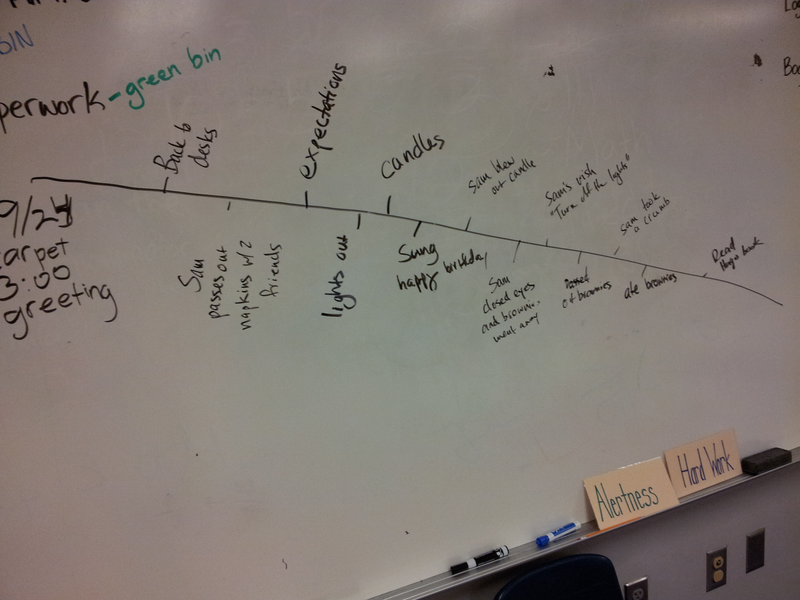 BIN
perwork - green bin
9/24
carpet
3:00
greeting
Back to
desks
Sam
passes out
napkins w/ 2
friends
expectations
lights out
candles
Sung
happy birthday
Sam blew
out candle
Sam
closed eyes
and brownie
went away
Sam's wish
"Turn off the lights"
Passed
out brownies
Sam took
a crumb
ate brownies
Read
Hugo book
Alertness
Hard Work
Boo